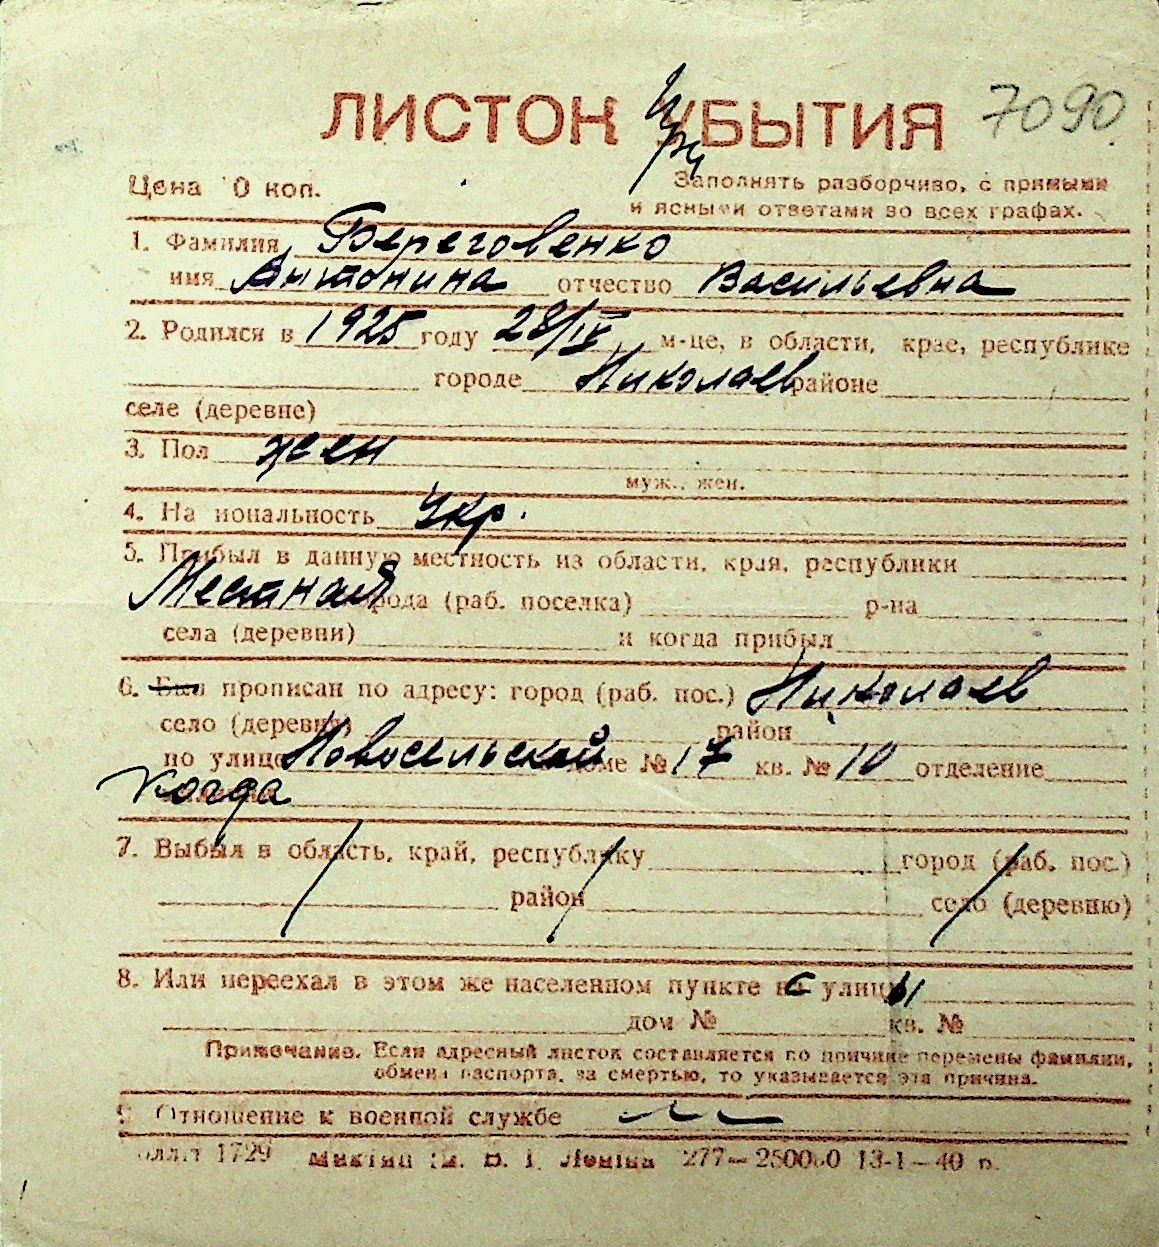 ЛИСТОН УБЫТИЯ 7090
При
Цена 0 коп. Заполнять разборчиво, с прямыми
и ясными ответами во всех графах.
1. Фамилия Береговенко
имя Антонина отчество Васильевна
2. Родился в 1925 году 28/IV м-це, в области, крае, республике
городе Николаев районе
селе (деревне)
3. Пол жен
муж., жен.
4. На иональность Укр.
5. Прибыл в данную местность из области, края, республики
Местная города (раб. поселка) р-на
села (деревни) и когда прибыл
6. Был прописан по адресу: город (раб. пос.) Николаев
село (деревня) район
по улице Новосельской доме № 17 кв. № 10 отделение
когда
7. Выбыл в область, край, республику город (раб. пос.)
район село (деревню)
8. Или переехал в этом же населенном пункте с улицы
дом № кв. №
Примечание. Если адресный листок составляется по причине перемены фамилии,
обмена паспорта, за смертью, то указывается эта причина.
9. Отношение к военной службе
1729 277—250000 13-1—40 р.